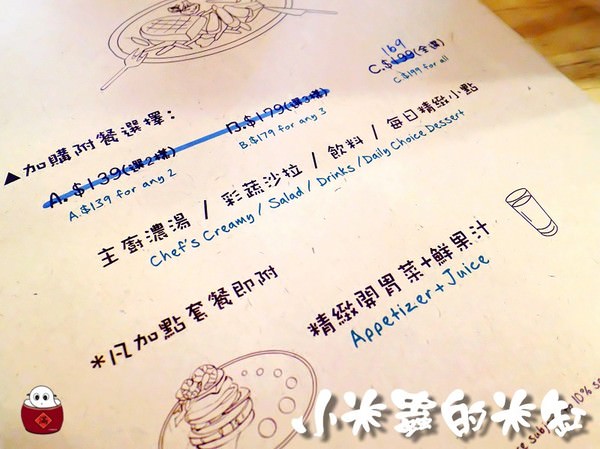 169
C.$199(全選)
C.$199 for all
▲加購附餐選擇：
A.$139(選2樣)
B.$179(選3樣)
A.$139 for any 2
B.$179 for any 3
主廚濃湯 / 彩蔬沙拉 / 飲料 / 每日精緻小點
Chef's Creamy / Salad / Drinks / Daily Choice Dessert
*凡加點套餐即附
精緻開胃菜+鮮果汁
Appetizer+Juice
10%
小米蟲的米缸
米